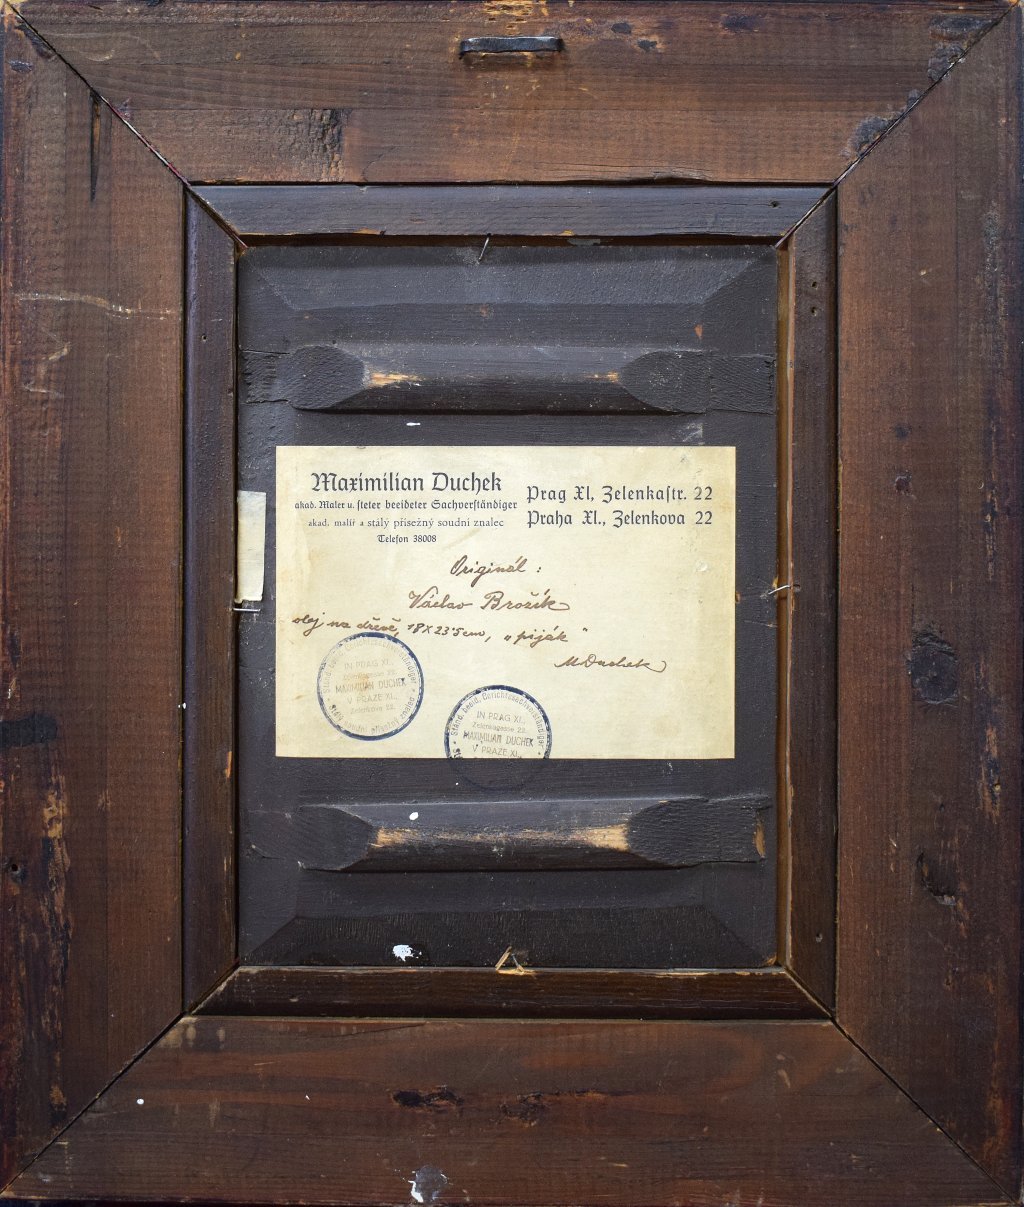 Maximilian Duchek
akad. Maler u. steter beeideter Sachverständiger
akad. malíř a stálý přísežný soudní znalec
Telefon 38008
Prag XI, Zelenkastr. 22
Praha XI., Zelenkova 22
Originál :
Václav Brožík
olej na dřevě, 18 x 23·5 cm, „piják“
M Duchek
Ständ. beeid. Gerichtssachverständiger
IN PRAG XI.,
Zelenkagasse 22.
MAXIMILIAN DUCHEK
V PRAZE XI.,
Zelenkova 22.
Stálý soudní přísežný znalec
Ständ. beeid. Gerichtssachverständiger
IN PRAG XI.,
Zelenkagasse 22.
MAXIMILIAN DUCHEK
V PRAZE XI.,